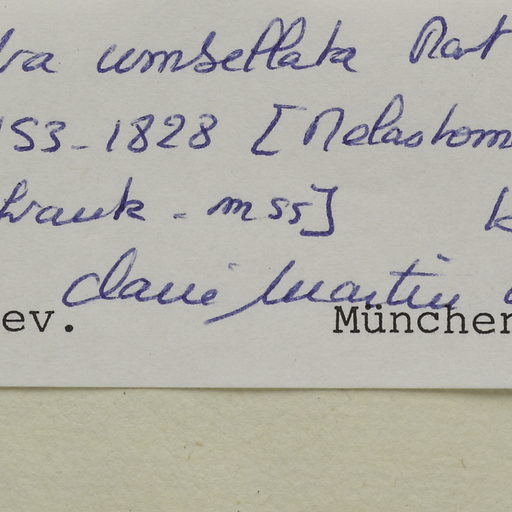 ra umbellata Mart
153-1828 [Melastom
hrank - mss]
Martin
ev. München